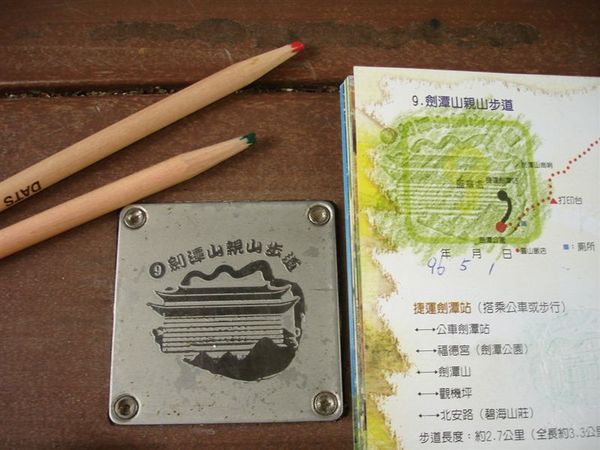 DATS
❾劍潭山親山步道
9.劍潭山親山步道
打印台
劍潭公園
圓山飯店
■:廁所
年 月 日
96 5 1
捷運劍潭站(搭乘公車或步行)
⟷公車劍潭站
⟷福德宮(劍潭公園)
⟷劍潭山
⟷觀機坪
⟷北安路(碧海山莊)
步道長度:約2.7公里(全長約3.3公里